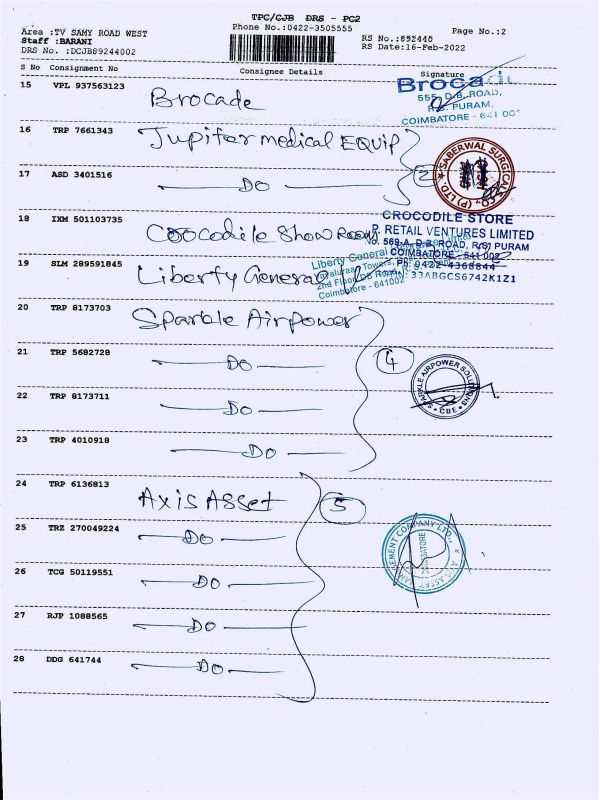 TPC/CJB DRS - PC2
Area :TV SAMY ROAD WEST Phone No.:0422-3505555 Page No.:2
Staff :BARANI RS No.:892440
DRS No. :DCJB89244002 RS Date:16-Feb-2022
S No Consignment No Consignee Details Signature
15 VPL 937563123 Brocade
555, D.B. ROAD,
R.S. PURAM,
COIMBATORE - 641 002
16 TRP 7661343 Jupiter medical EQUIP
SABERWAL SURGICAL CO. (P) LTD.
17 ASD 3401516 DO
18 IXM 501103735 Crocodile Show Room
CROCODILE STORE
P. RETAIL VENTURES LIMITED
No. 569-A, D.B. ROAD, R.S. PURAM
COIMBATORE - 641 002
Ph: 0422-4368844
33ABGCS6742K1Z1
19 SLM 289591845 Liberty General
Liberty General
2nd Floor, DB Road,
Coimbatore - 641002
20 TRP 8173703 Sparkle Airpower
21 TRP 5682728 DO 4
SPARKLE AIRPOWER SOLUTIONS
CBE
22 TRP 8173711 DO
23 TRP 4010918 DO
24 TRP 6136813 Axis Asset 5
25 TRZ 270049224 DO
AXIS ASSET MANAGEMENT COMPANY LTD.
COIMBATORE
26 TCG 50119551 DO
27 RJP 1088565 DO
28 DDG 641744 DO